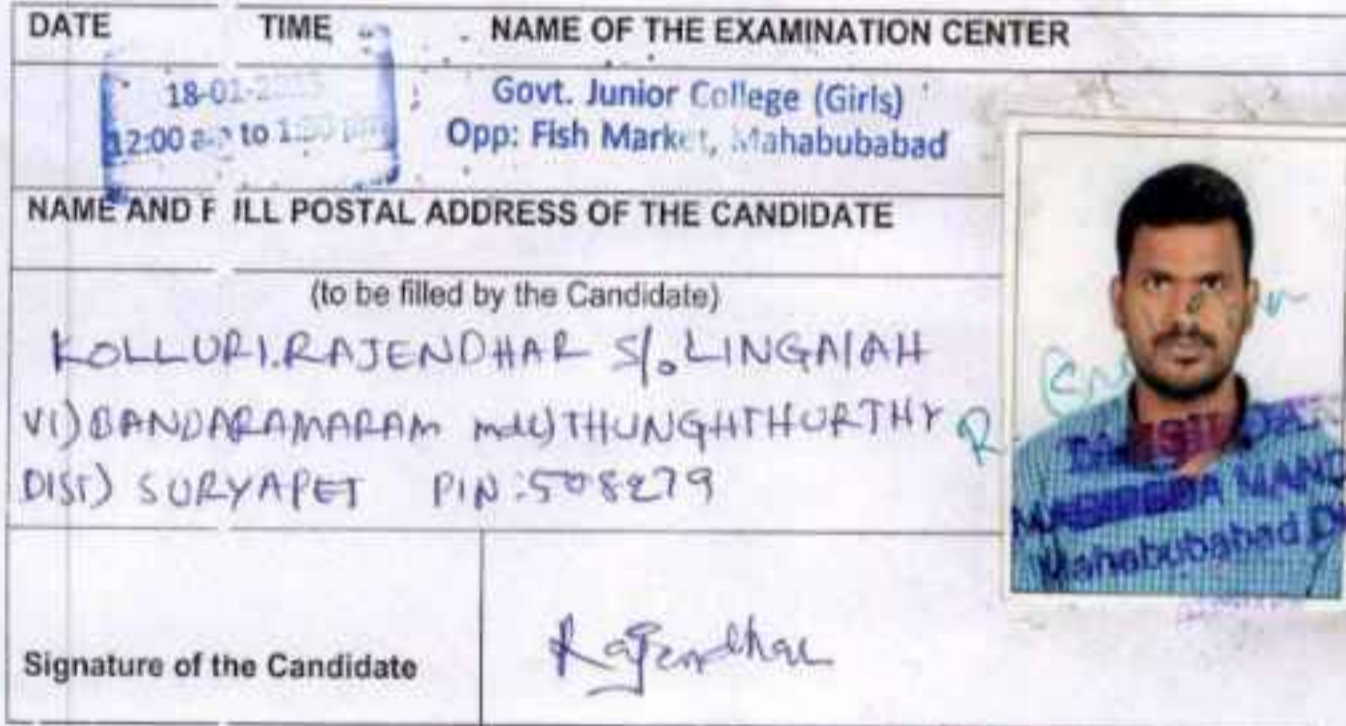 DATE TIME NAME OF THE EXAMINATION CENTER
18-01- Govt. Junior College (Girls)
12:00 to Opp: Fish Market, Mahabubabad
NAME AND F ILL POSTAL ADDRESS OF THE CANDIDATE
(to be filled by the Candidate)
KOLLURI.RAJENDHAR S/o LINGAIAH
VI) BANDARAMARAM mdl) THUNGHTHURTHY
DIST) SURYAPET PIN:508279
MAND
Mahabubabad D
Signature of the Candidate Rajendhar